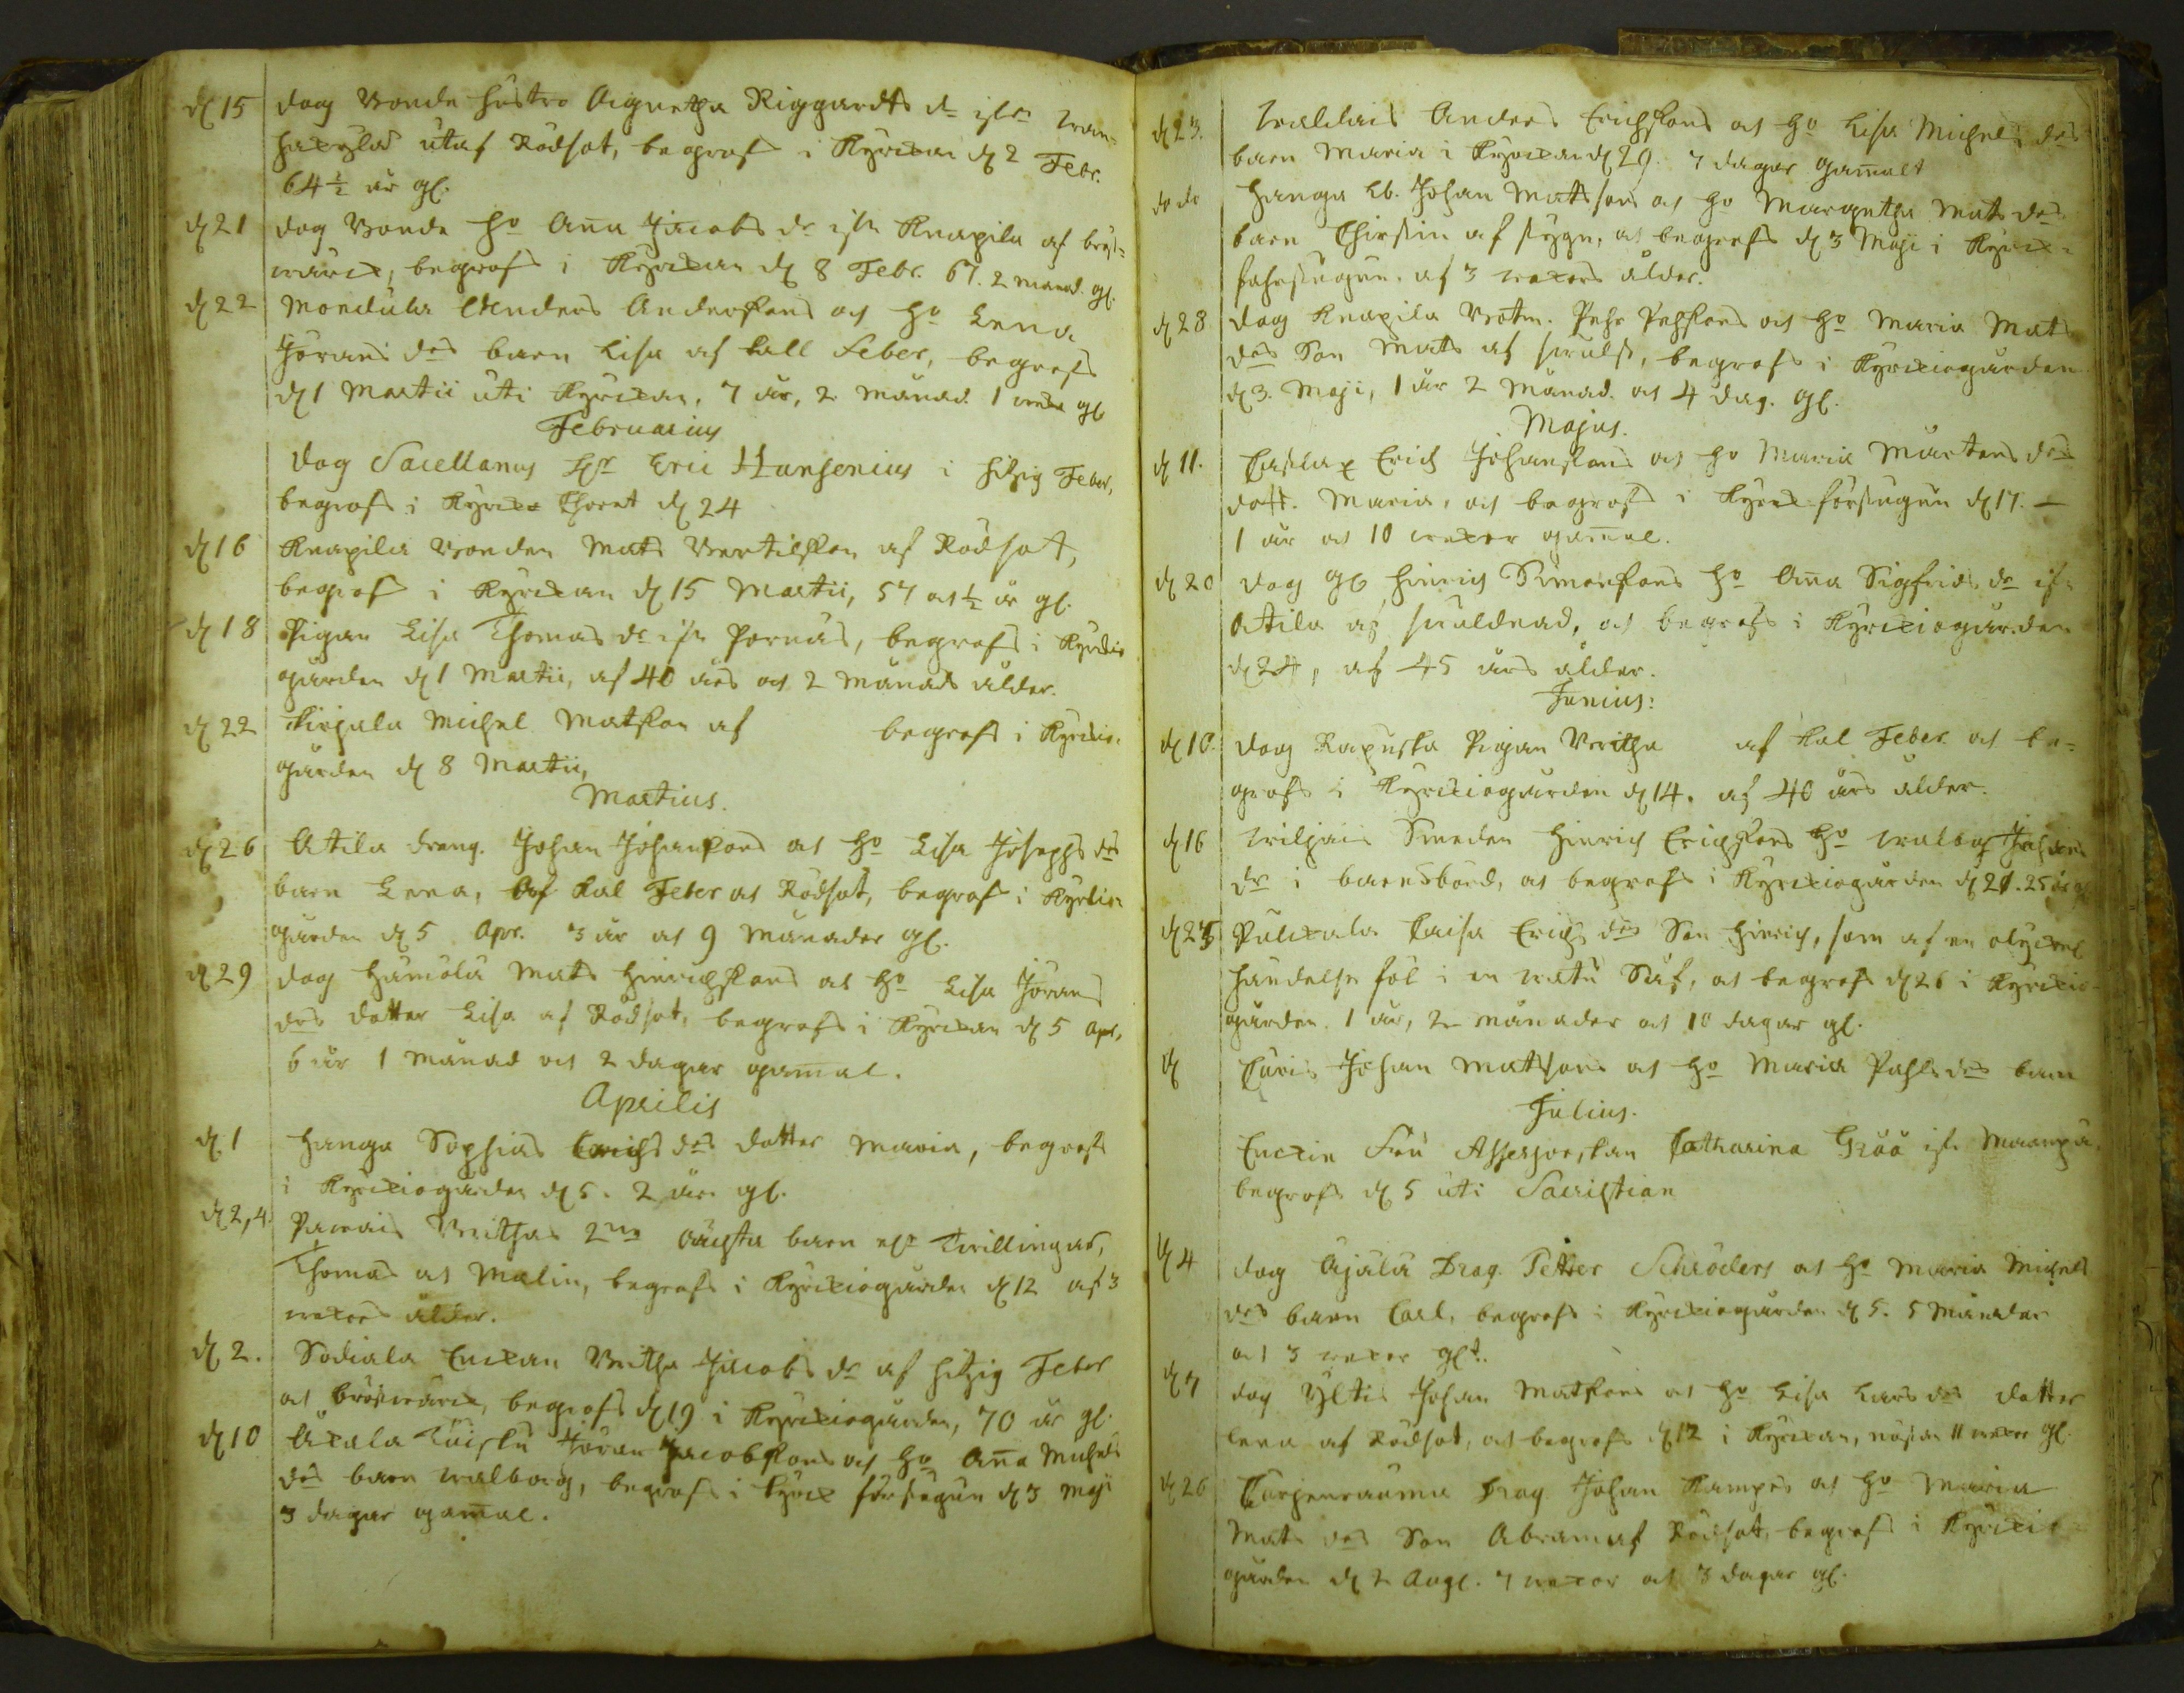 d 15 dog Bonde hustro Agnetha Riggardts dr
utaf Rödsot, begrofs i Kyrckan d 2 Febr.
64 ½ år gl.
d 21 dog Bonde ho Anna Jacobs dr ifr Knapila af bröst=
wärck, begrofs i Kyrckan d 8 Febr. 67. 2 månad. gl.
d 22 Mondula Anders Anderssons och ho Lena
Jörans drs barn Lisa af kall feber, begrofs
d 1 Martii uti Kyrckan, 7 år, 2 månad. 1 weka gl.
Februarius
dog Sacellanus Hr Eric Hansenius i hitzig Feber,
begrofs i Kyrcko Choret d 24
d 16 Knapila Bonden Mats Bertilsson af Rödsot,
begrofs i Kyrckan d 15 Martii, 57 och ½ år gl.
d 18 Pigan Lisa Thomas dr ifr Pornäs, begrofs i Kyrckio
gården d 1 Martii, af 40 års och 2 månads ålder.
d 22 Michel Matsson af begrofs i Kyrckio=
gården d 8 Martii,
Martius.
d 26 Atila dräng. Johan Johanssons och ho Lisa Josephs drs
barn Lena, af kal Feber och Rödsot, begrofs i Kyrkio=
gården d 5 Apr. 3 år och 9 månader gl.
d 29 dog Hämölä Mats Hinrichssons och ho Lisa Jörans
drs dotter Lisa af Rödsot, begrofs i Kyrckan d 5 Apr,
6 år 1 månad och 2 dagar gammal.
Aprilis
d. 1 Hanga Sophias Erichs drs dotter Maria, begrofs
i Kyrckiogården d 5. 2 åhr gl.
d 2, 4. Brithas 2ne oächta barn Twillingar,
Thomas och Malin, begrofs i Kyrckiogården d 12 af 3
wekors ålder.
d 2. Sodiala Enckan Britha Jacobs dr af hitzig Feber
och bröstwärck, begrofs d 19 i Kyrckiogården, 70 år gl.
d 10 Jöran Jacobssons och ho Anna Michels
drs barn Walborg, begrofs i Kyrck förstugun d 3 Maji
3 dagar gammal.
d 23. Anders Erichssons och ho Lisa Michels drs
barn Maria i Kyrckan d 29. 7 dagar gammalt
do do Hanga Johan Matssons och ho Margetha Mats drs
barn Chirstin af och begrofs d 3 Maji i Kyrck=
förstugun. af 3 wekors ålder.
d 28 dog Knapila Pehr Pehrssons och ho Maria Mats
drs Son Mats af begrofs i Kyrckiogården
d 3. Maji, 1 år 2 månad. och 4 dag. gl.
Majus.
d 11. Erich Johanssons och ho Maria Mårtens drs
dott. Maria, och begrofs i Kyrck förstugun d 17. —
1 år och 10 wekor gammal.
d 20 dog gl Hinrich Simonssons ho Anna Sigfrids dr ifr
Atila af och begrofs i Kyrckiogården
d 24, af 45 års ålder.
Junius:
d 10. dog Pigan Britha af kal Feber och be=
grofs i Kyrckiogården d 14. af 40 års ålder.
d 16 Smeden Hinrich Erichssons ho Walbor
dr i barnsbörd, och begrofs i Kyrckiogården d 21. 25
d 23 Caisa Erichs drs Son Hinrich, som af en
händelse föl i en och begrofs d 26 i Kyrckio=
gården. 1 år, 2 månader och 10 dagar gl.
d Johan Matssons och ho Maria Pahls drs barn
Julius.
Enckie Fru Assessorskan Catharina Gråå ifr
begrofs d 5 uti Sacristian
d 4 dog Äjälä Drag. Petter Schröders och ho Maria Michels
drs barn Carl, begrofs i Kyrckiogården d 5. 5 månader
och 3 wekor glt.
d 7 dog Yltis Johan Matssons och ho Lisa Lars drs dotter
Lena af Rödsot, och begrofs d 12 i Kyrckan, 11 wekor gl.
d 26 Drag Johan Kampes och ho Maria
Mats drs Son Abram af Rödsot, begrofs i Kyrckio=
gården d 2 Aug. 7 wekor och 3 dagar gl.